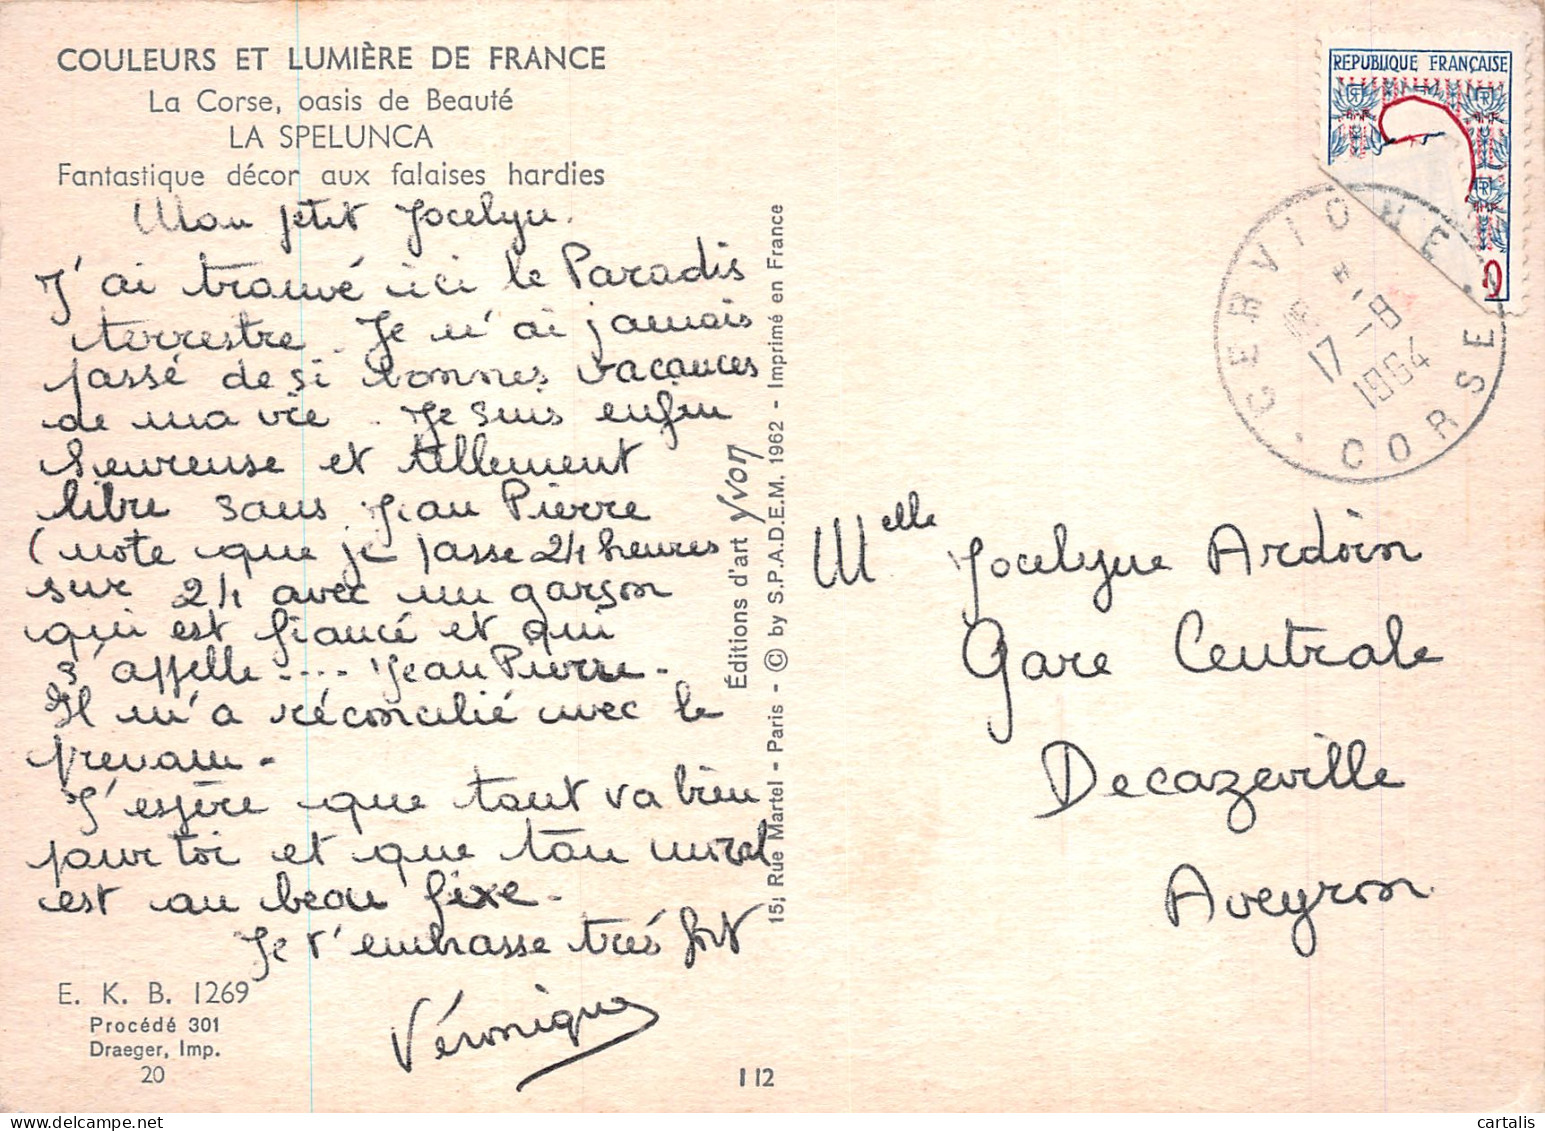 COULEURS ET LUMIÈRE DE FRANCE
La Corse, oasis de Beauté
LA SPELUNCA
Fantastique décor aux falaises hardies
Mon petit Jocelyn.
J'ai trouvé ici le Paradis
terrestre. Je n'ai jamais
passé de si bonnes vacances
de ma vie. Je suis enfin
heureuse et tellement
libre sans Jean Pierre
(note que je passe 24 heures
sur 24 avec un garson
qui est fiancé et qui
s'appelle .... Jean Pierre.
Il m'a réconcilié avec le
prenom.
J'espère que tout va bien
pour toi et que ton moral
est au beau fixe.
Je t'embrasse très fort
Véronique
E. K. B. 1269
Procédé 301
Draeger, Imp.
20
1 12
Éditions d'art Yvon
15, Rue Martel - Paris - © by S.P.A.D.E.M. 1962 - Imprimé en France
REPUBLIQUE FRANÇAISE
CERVIONE
17 -8
1964
CORSE
Melle Jocelyne Ardoin
Gare Centrale
Decazeville
Aveyron
cartalis